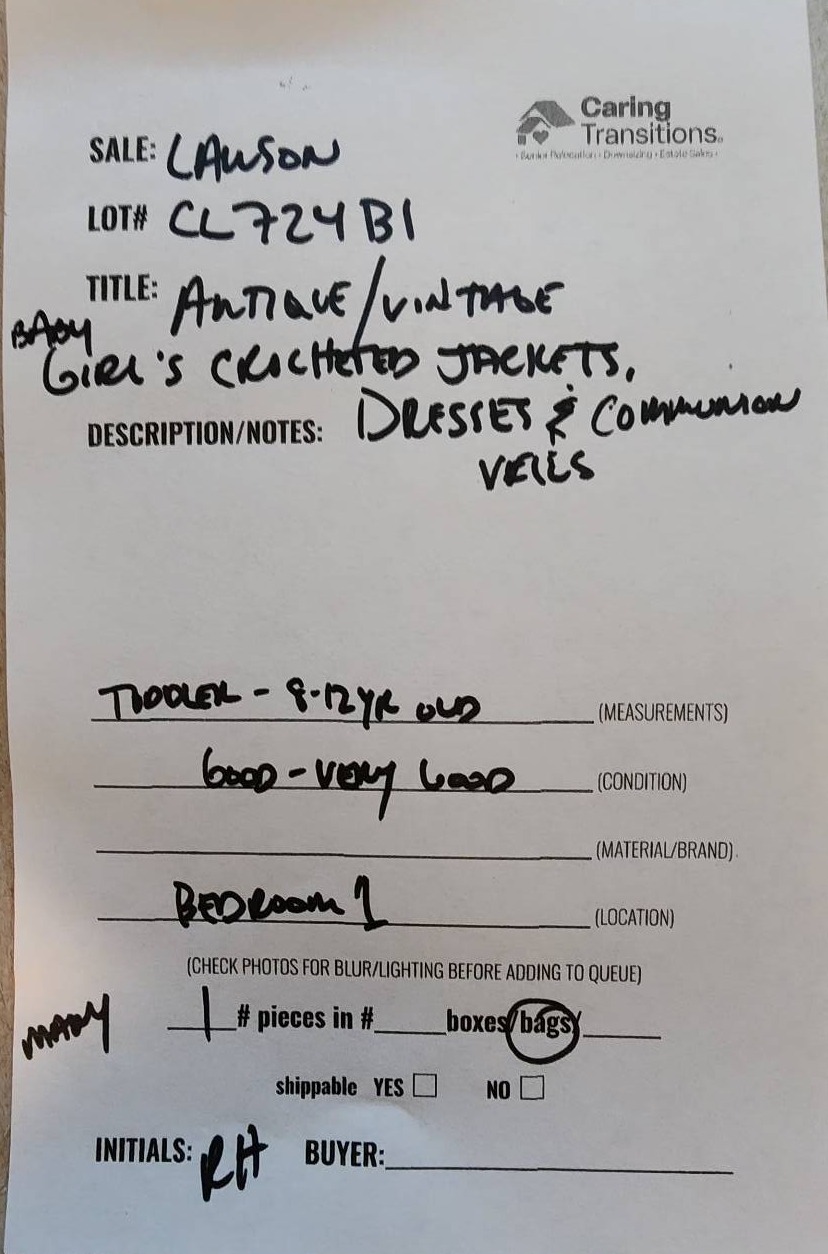 Caring
Transitions
• Senior Relocation • Downsizing • Estate Sales •
SALE: LAWSON
LOT# CL724B1
TITLE: ANTIQUE/VINTAGE
BABY
GIRL'S CROCHETED JACKETS,
DESCRIPTION/NOTES: DRESSES & COMMUNION
VEILS
TODDLER - 8-12 YR OLD (MEASUREMENTS)
GOOD - VERY GOOD (CONDITION)
(MATERIAL/BRAND)
BEDROOM 1 (LOCATION)
(CHECK PHOTOS FOR BLUR/LIGHTING BEFORE ADDING TO QUEUE)
MANY 1 # pieces in # boxes/bags/
shippable YES NO
INITIALS: RH BUYER: